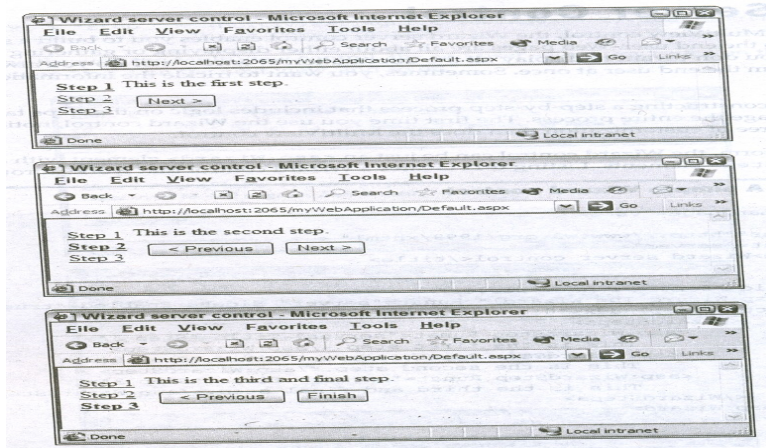 Wizard server control - Microsoft Internet Explorer
File Edit View Favorites Tools Help
Back Search Favorites Media
Address http://localhost:2065/myWebApplication/Default.aspx Go Links »
Step 1 This is the first step.
Step 2 Next >
Step 3
Done Local intranet
Wizard server control - Microsoft Internet Explorer
File Edit View Favorites Tools Help
Back Search Favorites Media
Address http://localhost:2065/myWebApplication/Default.aspx Go Links »
Step 1 This is the second step.
Step 2 < Previous Next >
Step 3
Done Local intranet
Wizard server control - Microsoft Internet Explorer
File Edit View Favorites Tools Help
Back Search Favorites Media
Address http://localhost:2065/myWebApplication/Default.aspx Go Links »
Step 1 This is the third and final step.
Step 2 < Previous Finish
Step 3
Done Local intranet